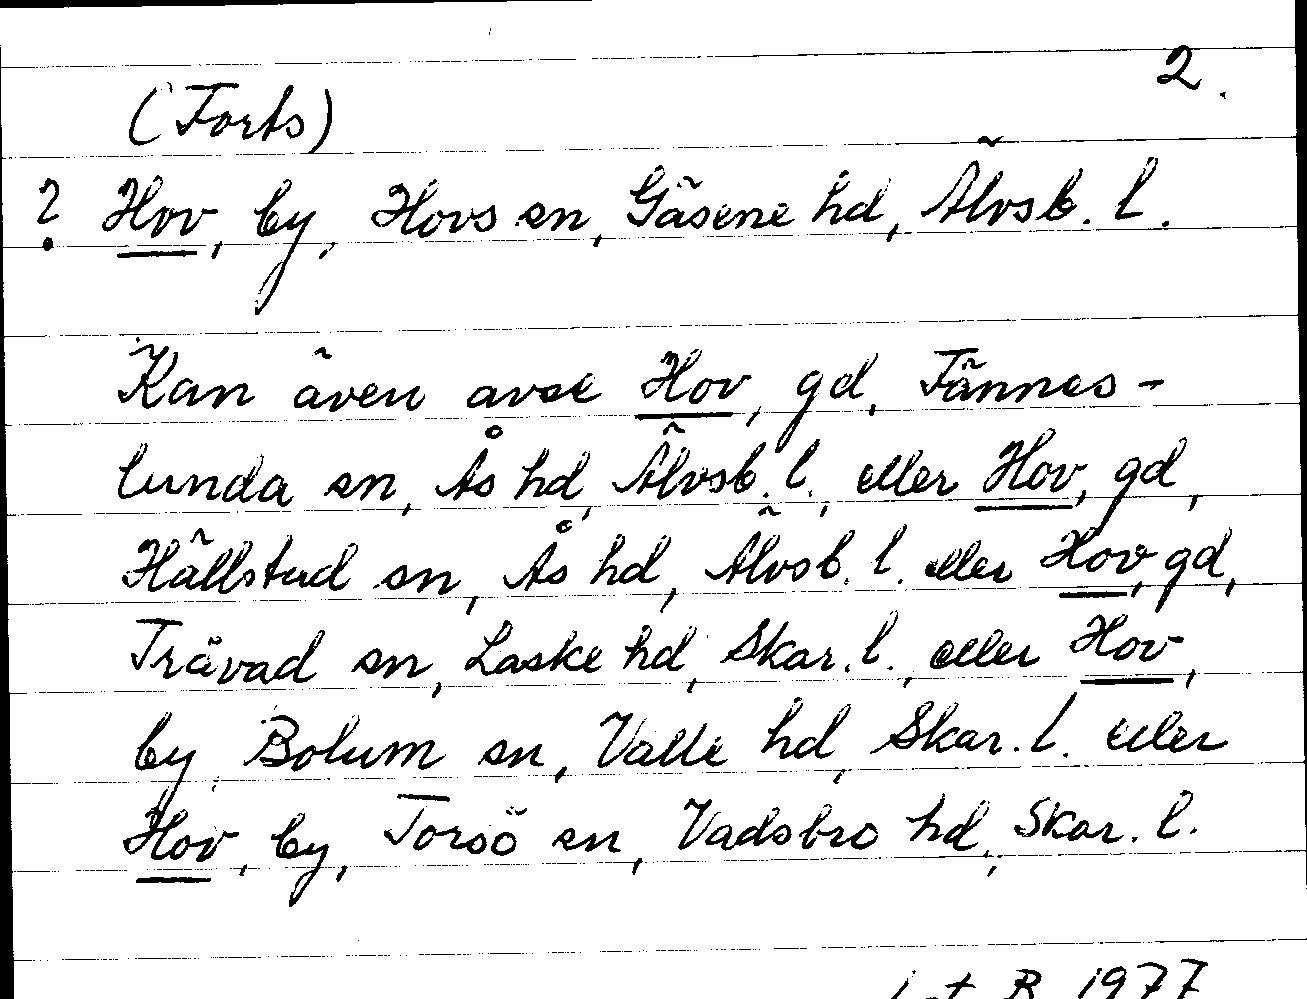 2.
(Forts)
? Hov, by, Hovs sn, Gäsene hd, Älvsb. l.
Kan även avse Hov, gd, Tännes-
lunda sn, Ås hd, Älvsb. l., eller Hov, gd,
Hällstad sn, Ås hd, Älvsb. l. eller Hov, gd,
Trävad sn, Laske hd, Skar. l., eller Hov,
by, Bolum sn, Valle hd, Skar. l. eller
Hov, by, Torsö sn, Vadsbro hd, Skar. l.
B 1977